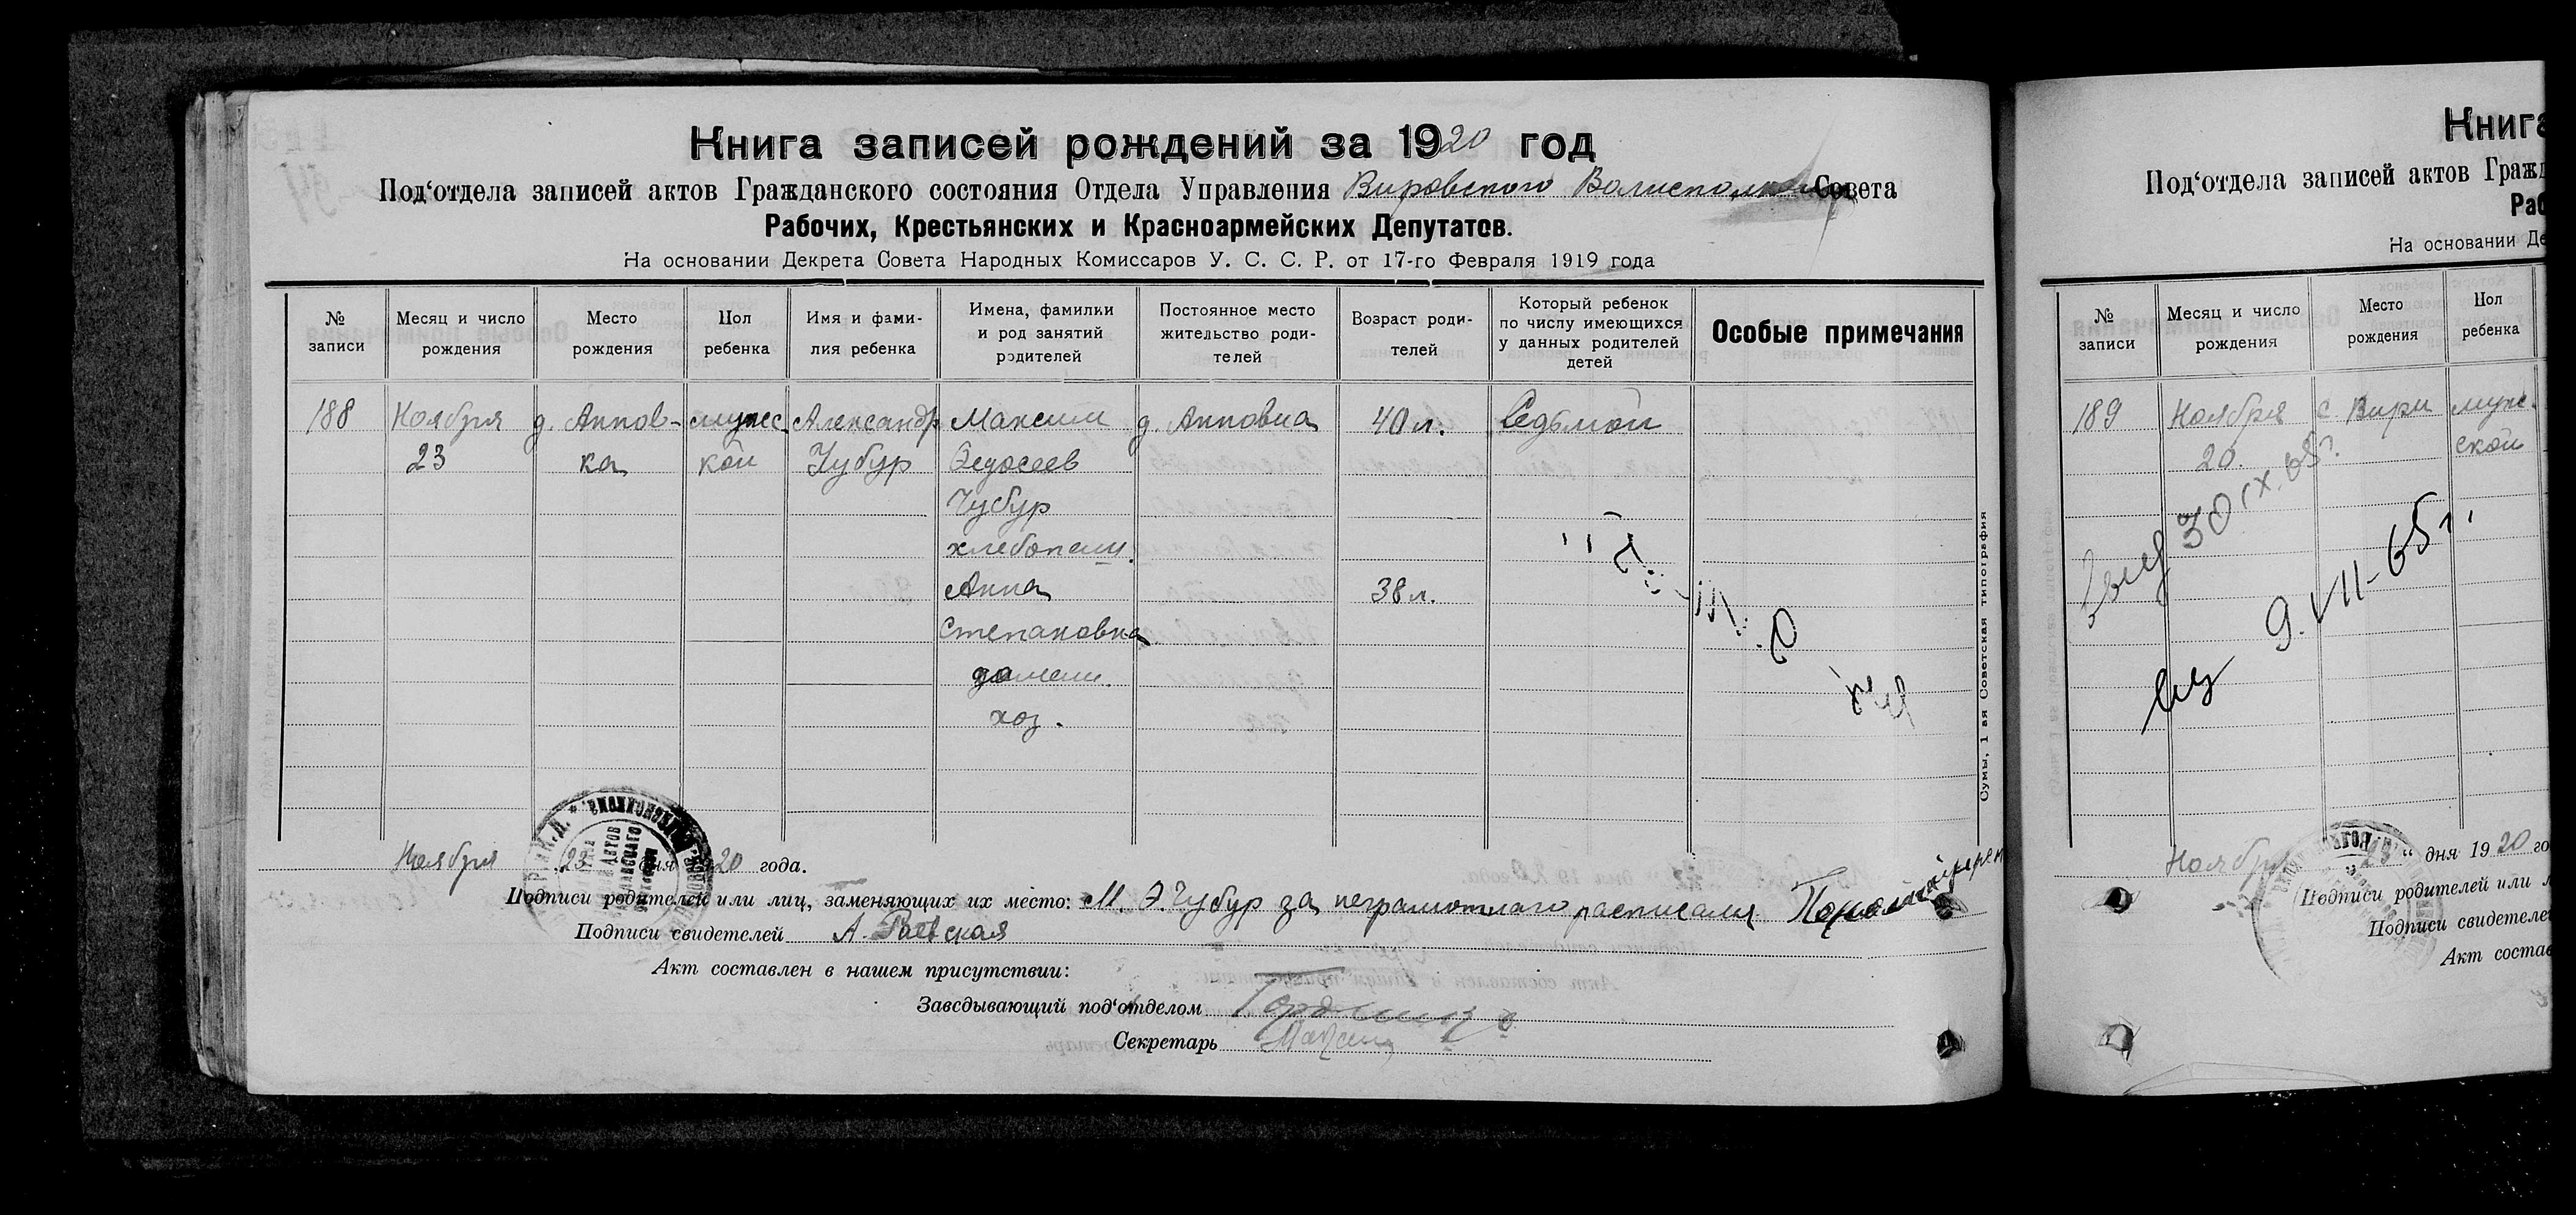 Книга записей рождений за 1920 год
Под‘отдела записей актов Гражданского состояния Отдела Управления Вировского Волисполкома Совета
Рабочих, Крестьянских и Красноармейских Депутатов.
На основании Декрета Совета Народных Комиссаров У. С. С. Р. от 17-го Февраля 1919 года
№ записи
Месяц и число рождения
Место рождения
Пол ребенка
Имя и фами-лия ребенка
Имена, фамилки и род занятий родителей
Постоянное место жительство роди-телей
Возраст роди-телей
Который ребенок по числу имеющихся у данных родителей детей
Особые примечания
188 Ноября д. Аннов- мужс Александр Максим д. Анновка 40 л. Седьмой
23 ка кой Чубур Эедосеев
Чубур
хлебопаш.
Анна 38 л.
Степановна
домаш.
хоз.
Сумы, 1 ая Советская типография
Ноября 23 дня 20 года.
Подписи родителей или лиц, заменяющих их место: М. Э. Чубур за неграмотнаго расписался
Подписи свидетелей А. Раевская
Акт составлен в нашем присутствии:
Завсдывающий под‘отделом
Секретарь
Книга
Под‘отдела записей актов Гражд
Раб
На основании Де
№ записи
Месяц и число рождения
Место рождения
Пол ребенка
189 Ноября с Вири муж.
20. ской
9. VII-65 г.
Ноября 23 “ дня 1920 го
Подписи родителей или л
Подписи свидетелей
Акт состав